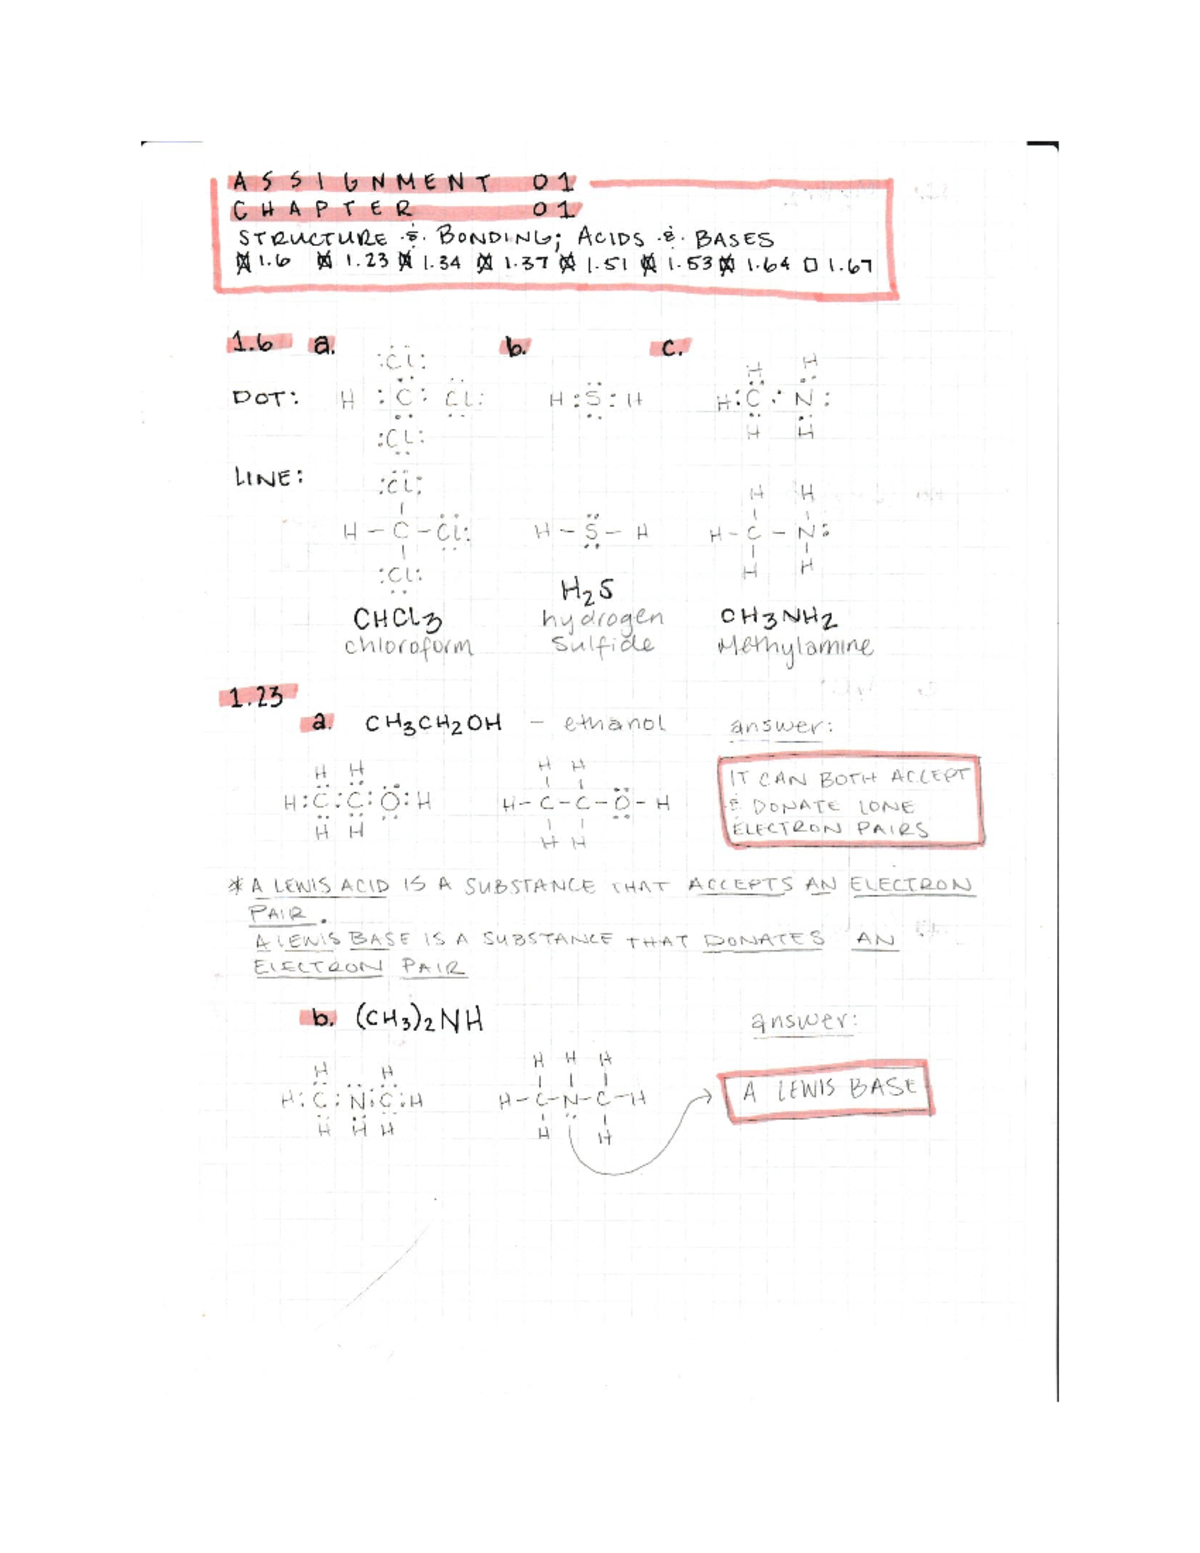 ASSIGNMENT 01
CHAPTER 01
STRUCTURE & BONDING; ACIDS & BASES
☒ 1.6 ☒ 1.23 ☒ 1.34 ☒ 1.37 ☒ 1.51 ☒ 1.53 ☒ 1.64 ☐ 1.67
1.6 a. b. c.
:Cl: H H
DOT: H : C : Cl: H : S : H H : C : N :
:Cl: H H
LINE: :Cl: H H
H – C – Cl: H – S – H H – C – N:
:Cl: H H
H2S
CHCl3 hydrogen CH3NH2
chloroform Sulfide Methylamine
1.23
a. CH3CH2OH – ethanol answer:
H H H H IT CAN BOTH ACCEPT
H : C : C : O : H H – C – C – O – H & DONATE LONE
H H H H ELECTRON PAIRS
* A LEWIS ACID IS A SUBSTANCE THAT ACCEPTS AN ELECTRON
PAIR.
A LEWIS BASE IS A SUBSTANCE THAT DONATES AN
ELECTRON PAIR
b. (CH3)2NH answer:
H H H H H
H : C : N : C : H H – C – N – C – H A LEWIS BASE
H H H H H